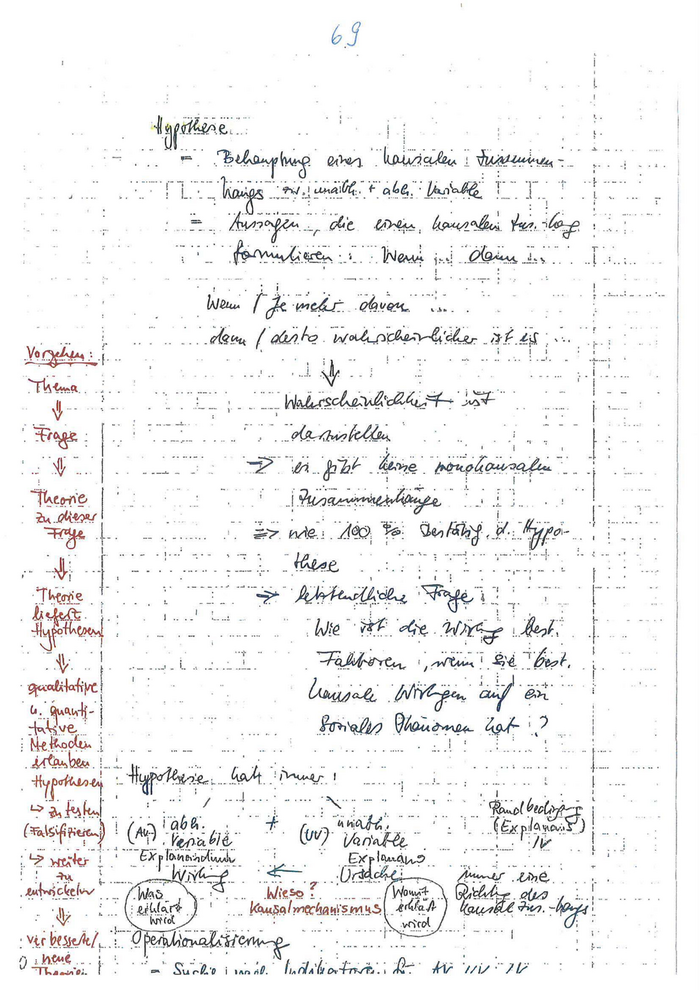 6.9
Hypothese
= Behauptung eines kausalen Zusammen-
hangs zw. unabh. + abh. Variable
= Aussagen, die einen kausalen Zus.-hang
formulieren: Wenn ... dann ...
Wenn / Je mehr davon ...
dann / desto wahrscheinlicher ist es ...
⇓
Wahrscheinlichkeit ist
darzustellen
⇒ es gibt keine monokausalen
Zusammenhänge
⇒ nie 100 % Bestätig. d. Hypo-
these
⇒ letztendliche Frage:
Wie ist die Wirkg best.
Faktoren, wenn sie best.
kausale Wirkgen auf ein
soziales Phänomen hat?
Vorgehen:
Thema
⇓
Frage
⇓
Theorie
zu dieser
Frage
⇓
Theorie
liefert
Hypothesen
⇓
qualitative
u. quanti-
tative
Methoden
erlauben
Hypothesen
↳ zu testen
(Falsifizieren)
↳ weiter
zu
entwickeln
⇓
verbesserte/
neue
Theorien
Hypothese hat immer:
(AV) abh. + (UV) unabh. Randbedingg
Variable Variable (Explanans)
Explanandum Explanans IV
Wirkung ← Ursache immer eine
Was Wieso? Womit Richtung des
erklärt Kausalmechanismus erklärt kausale Zus.-hangs
wird wird
Operationalisierung
= Suche nach Indikatoren f. AV UV IV